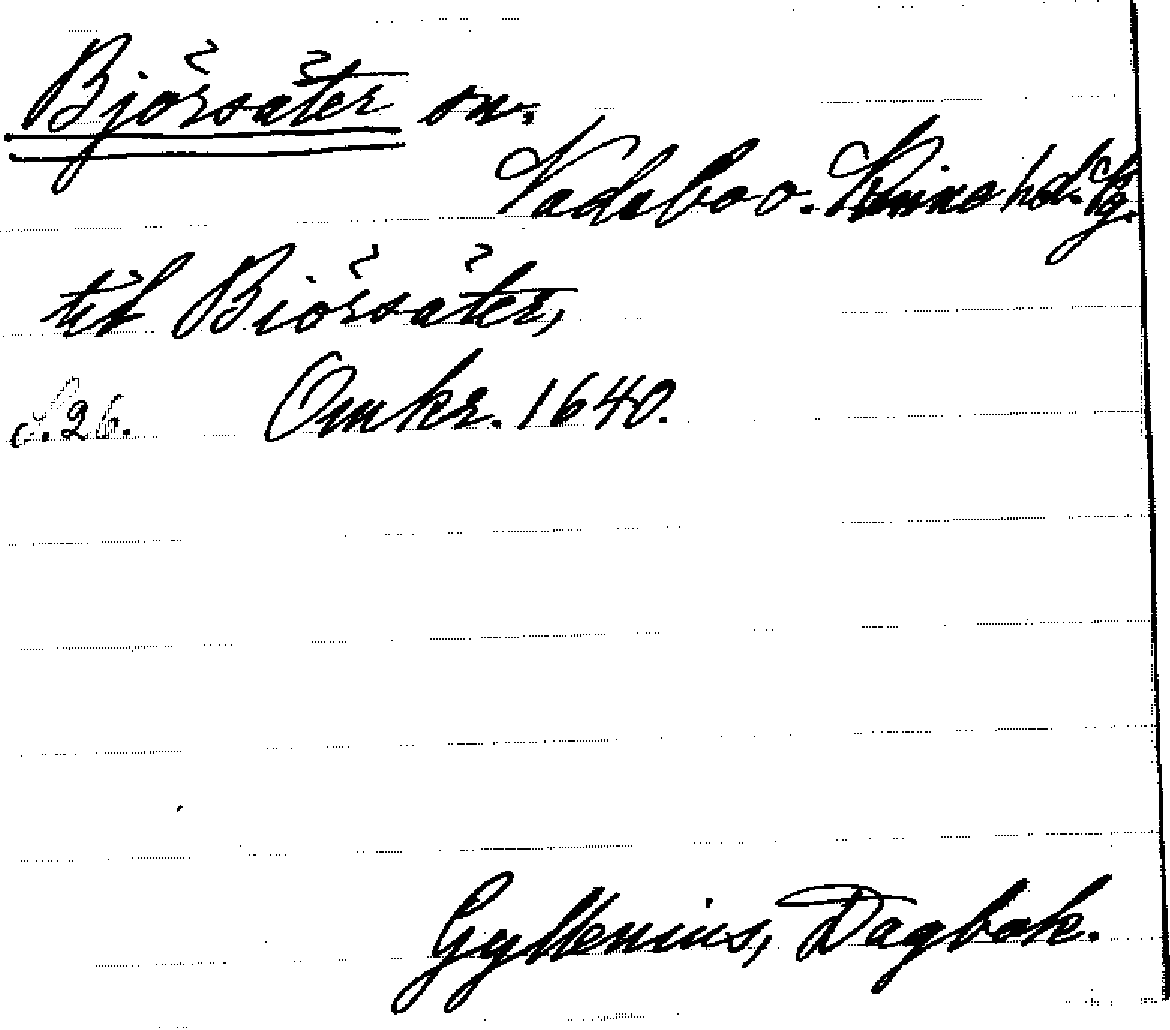 Björsäter sn.
Vadsbo o. Kinne hd. Vg.
til Biörsäter,
S. 26. Omkr. 1640.
Gyllenius, Dagbok.